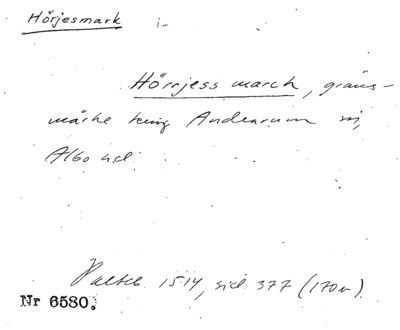 Hörjesmark
Hörrjess march, gräns-
märke kring Andrarum sn,
Albo hd.
1514, sid. 377 (170v).
Nr 6580.